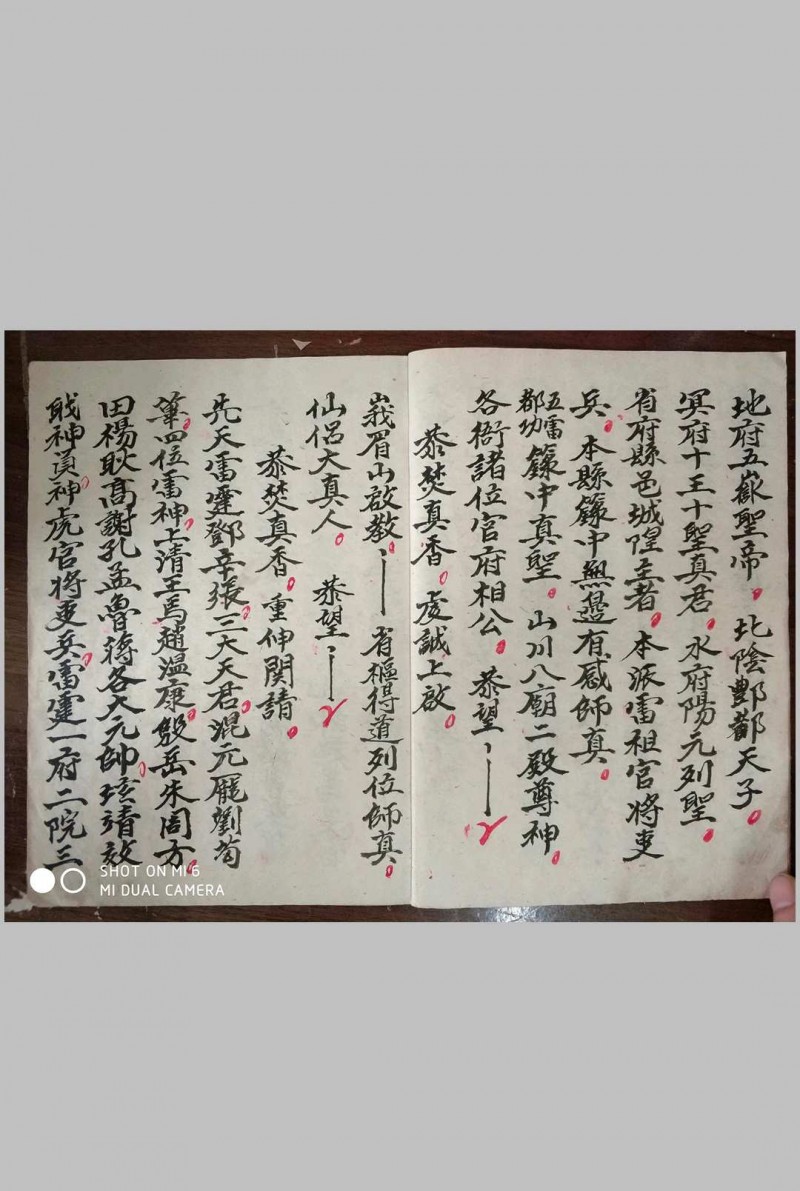 地府五嶽聖帝。北陰酆都天子。
冥府十王十聖真君。水府陽元列聖。
省府縣邑城隍主者。本派雷祖官將吏
兵。本縣籙中無邊有感師真。
五雷都功籙中真聖。山川八廟二殿尊神。
各衙諸位官府相公。恭望丶
恭焚真香。虔誠上啟。
峩眉山啟教。有樞得道列位師真。
仙侶大真人。恭望丶
恭焚真香。重伸関請。
先天雷霆鄧辛張三大天君。混元龎劉苟
畢四位雷神。上清王馬趙溫康。殷岳朱周方
田楊耿高謝孔孟魯蔣各大元帥。靖效
戝神貟神虎官將吏兵。雷霆一府二院三
SHOT ON MI 6
MI DUAL CAMERA